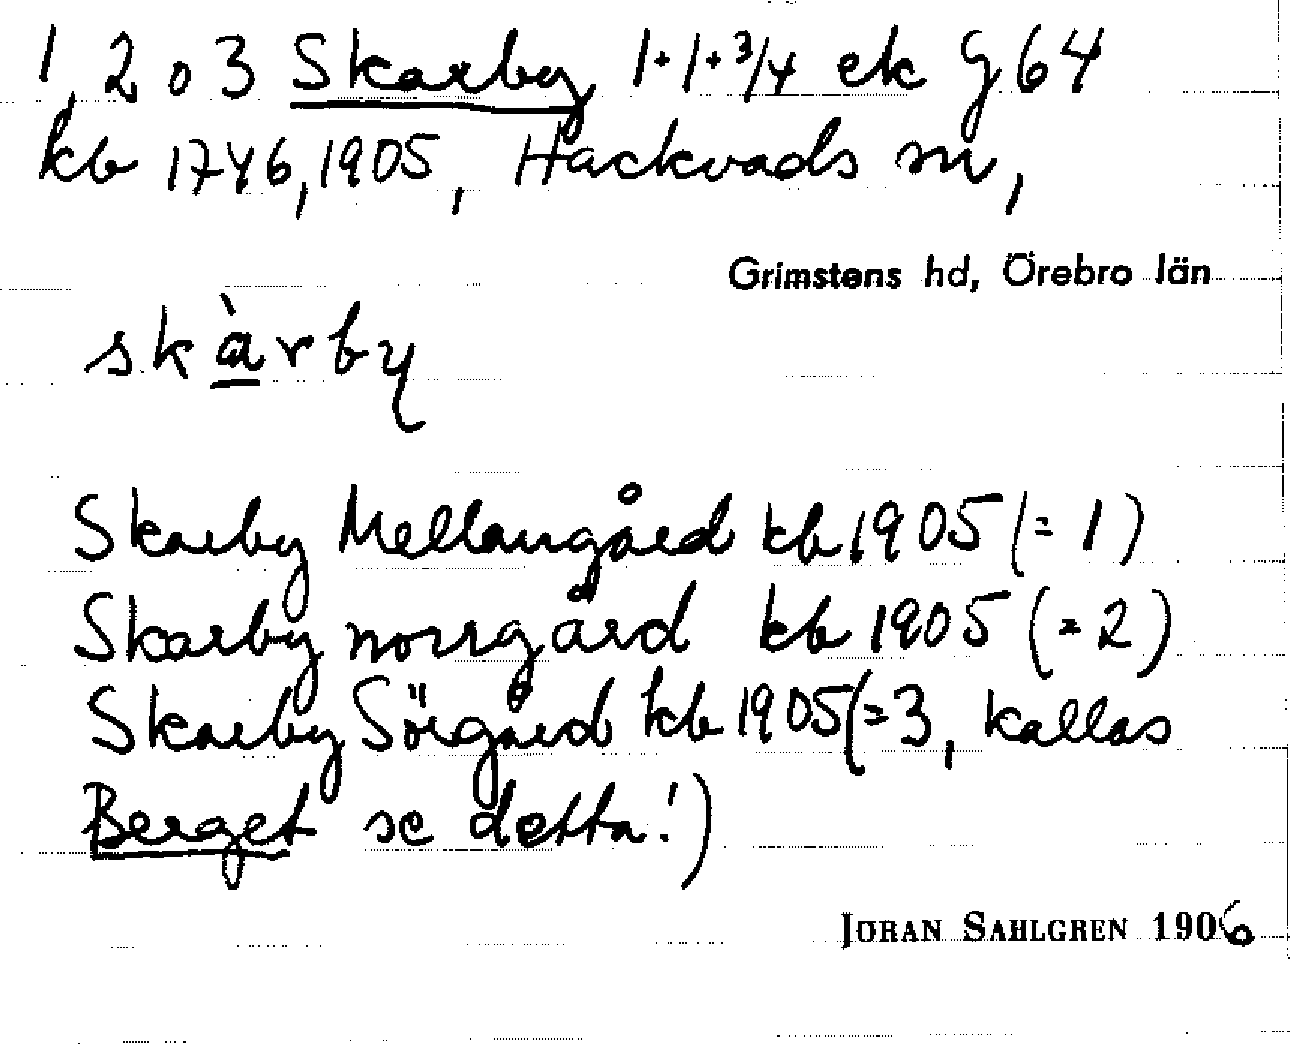 1, 2 o 3 Skarby 1+1+3/4 ek G 64
kb 1746, 1905, Hackvads sn,
Grimstens hd, Örebro län
skàrby
Skarby Mellangård kb 1905 (= 1)
Skarby norrgård kb 1905 (= 2)
Skarby Sörgård kb 1905 (= 3, kallas
Berget se detta!)
JÖRAN SAHLGREN 1906